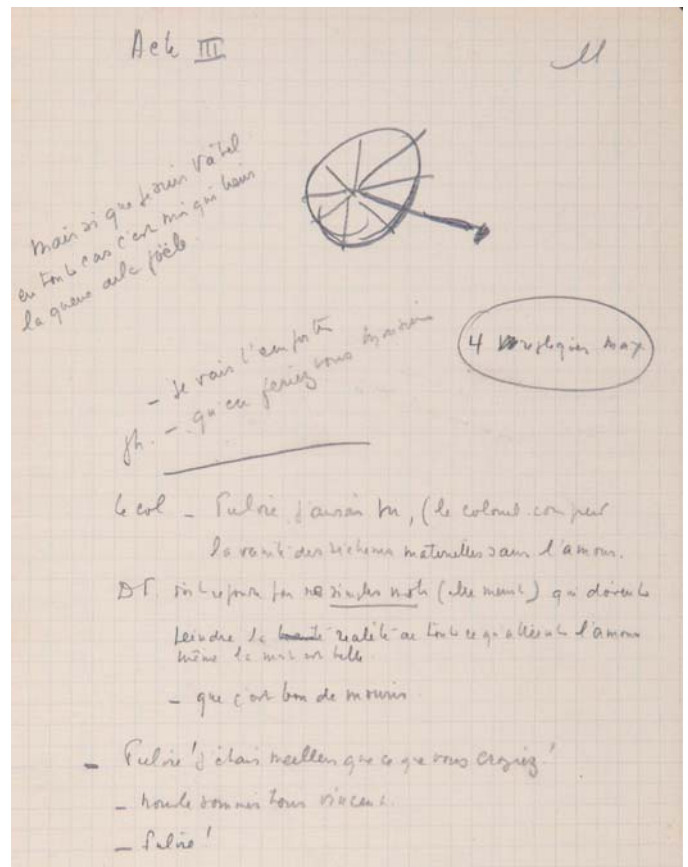 Acte III
11
Mais si que je suis Vâtel
en tout cas c'est moi qui tiens
la queue de la poêle.
4 répliques max
- Je vais l'emporter
Jh. - qu'en feriez vous
le col - Fulvie j'aurai vu, (le colonel
la vanité des richesses matérielles sans l'amour.
DT. simples mots (elle meurt) qui doivent
peindre la réalité de tout ce qu'a l'amour
même la mort est belle
- que c'est bon de mourir
- Fulvie! j'étais meilleur que ce que vous croyiez!
- nous le sommes tous Vincent.
- Fulvie!